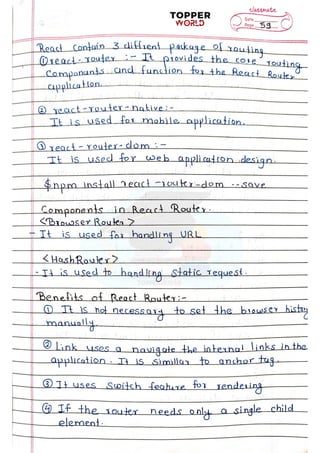 classmate
TOPPER WORLD
Date
Page 59
React Contain 3 diffrent package of routing
① react-router :- It provides the core routing
Componants and function for the React Router
application.
② react-router-native :-
It is used for mobile application.
③ react-router-dom :-
It is used for web application design.
$npm install react-router-dom --save
Components in React Router.
<Browser Router>
- It is used for handling URL
<HashRouter>
- It is used to handling static request.
Benefits of React Router:-
① It is not necessary to set the browser histry
manually.
② Link uses a navigate the internal links in the
application. It is simillar to anchor tag.
③ It uses Switch feature for rendering
④ If the router needs only a single child
element.